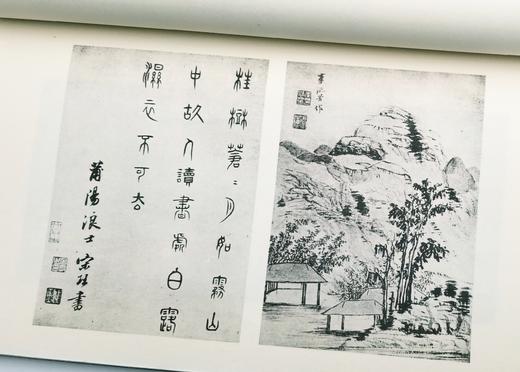 桂樹蒼〻月如霧山
中故人讀書處白露
濕衣不可去
莆陽浪士宋珏書
李流芳作